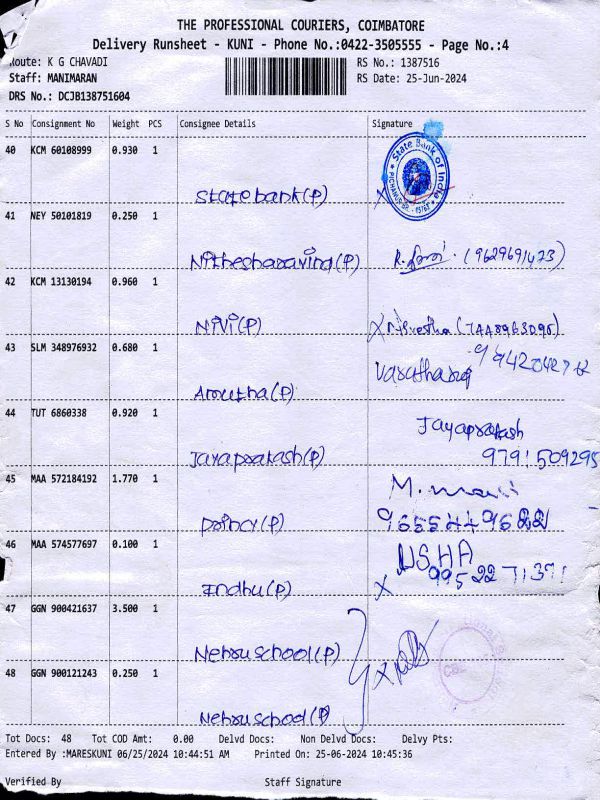 THE PROFESSIONAL COURIERS, COIMBATORE
Delivery Runsheet - KUNI - Phone No.:0422-3505555 - Page No.:4
Route: K G CHAVADI
RS No.: 1387516
Staff: MANIMARAN
RS Date: 25-Jun-2024
DRS No.: DCJB138751604
S No Consignment No Weight PCS Consignee Details Signature
40 KCM 60108999 0.930 1
State Bank of India
State bank(P) X
41 NEY 50101819 0.250 1
Nitheshapavind(P) R. (9629691473)
42 KCM 13130194 0.960 1
Nivi(P) X
43 SLM 348976932 0.680 1
9942042712
Amutha(P)
44 TUT 6860338 0.920 1
Jayaprakash
Jayaprakash(P) 9791509295
45 MAA 572184192 1.770 1
M.
9655449622
46 MAA 574577697 0.100 1
USHA
9952271371
Indhu(P) X
47 GGN 900421637 3.500 1
Nehru school(P) X
48 GGN 900121243 0.250 1
Nehru school(P)
Tot Docs: 48 Tot COD Amt: 0.00 Delvd Docs: Non Delvd Docs: Delvy Pts:
Entered By :MARESKUNI 06/25/2024 10:44:51 AM Printed On: 25-06-2024 10:45:36
Verified By Staff Signature